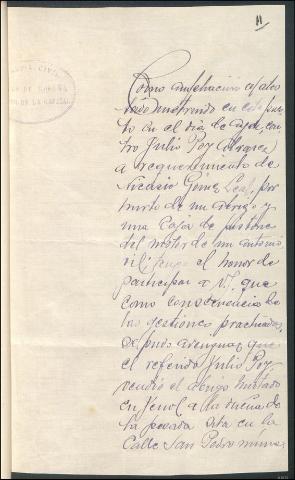 11
Como ampliación al ates
tado instruido en este pues
to en el día de ayer, con
tro Julio Poy Alvarez
a requerimiento de
Gómez Leal, por
hurto de un abrigo y
una caja de pistones
del motor de un automo
vil, tengo el honor de
participar a V. que
como consecuencia de
las gestiones practicadas,
se pudo averiguar que
el referido Julio Poy,
vendió el abrigo hurtado
en Ferrol a la dueña de
la posada sita en la
Calle San Pedro nume